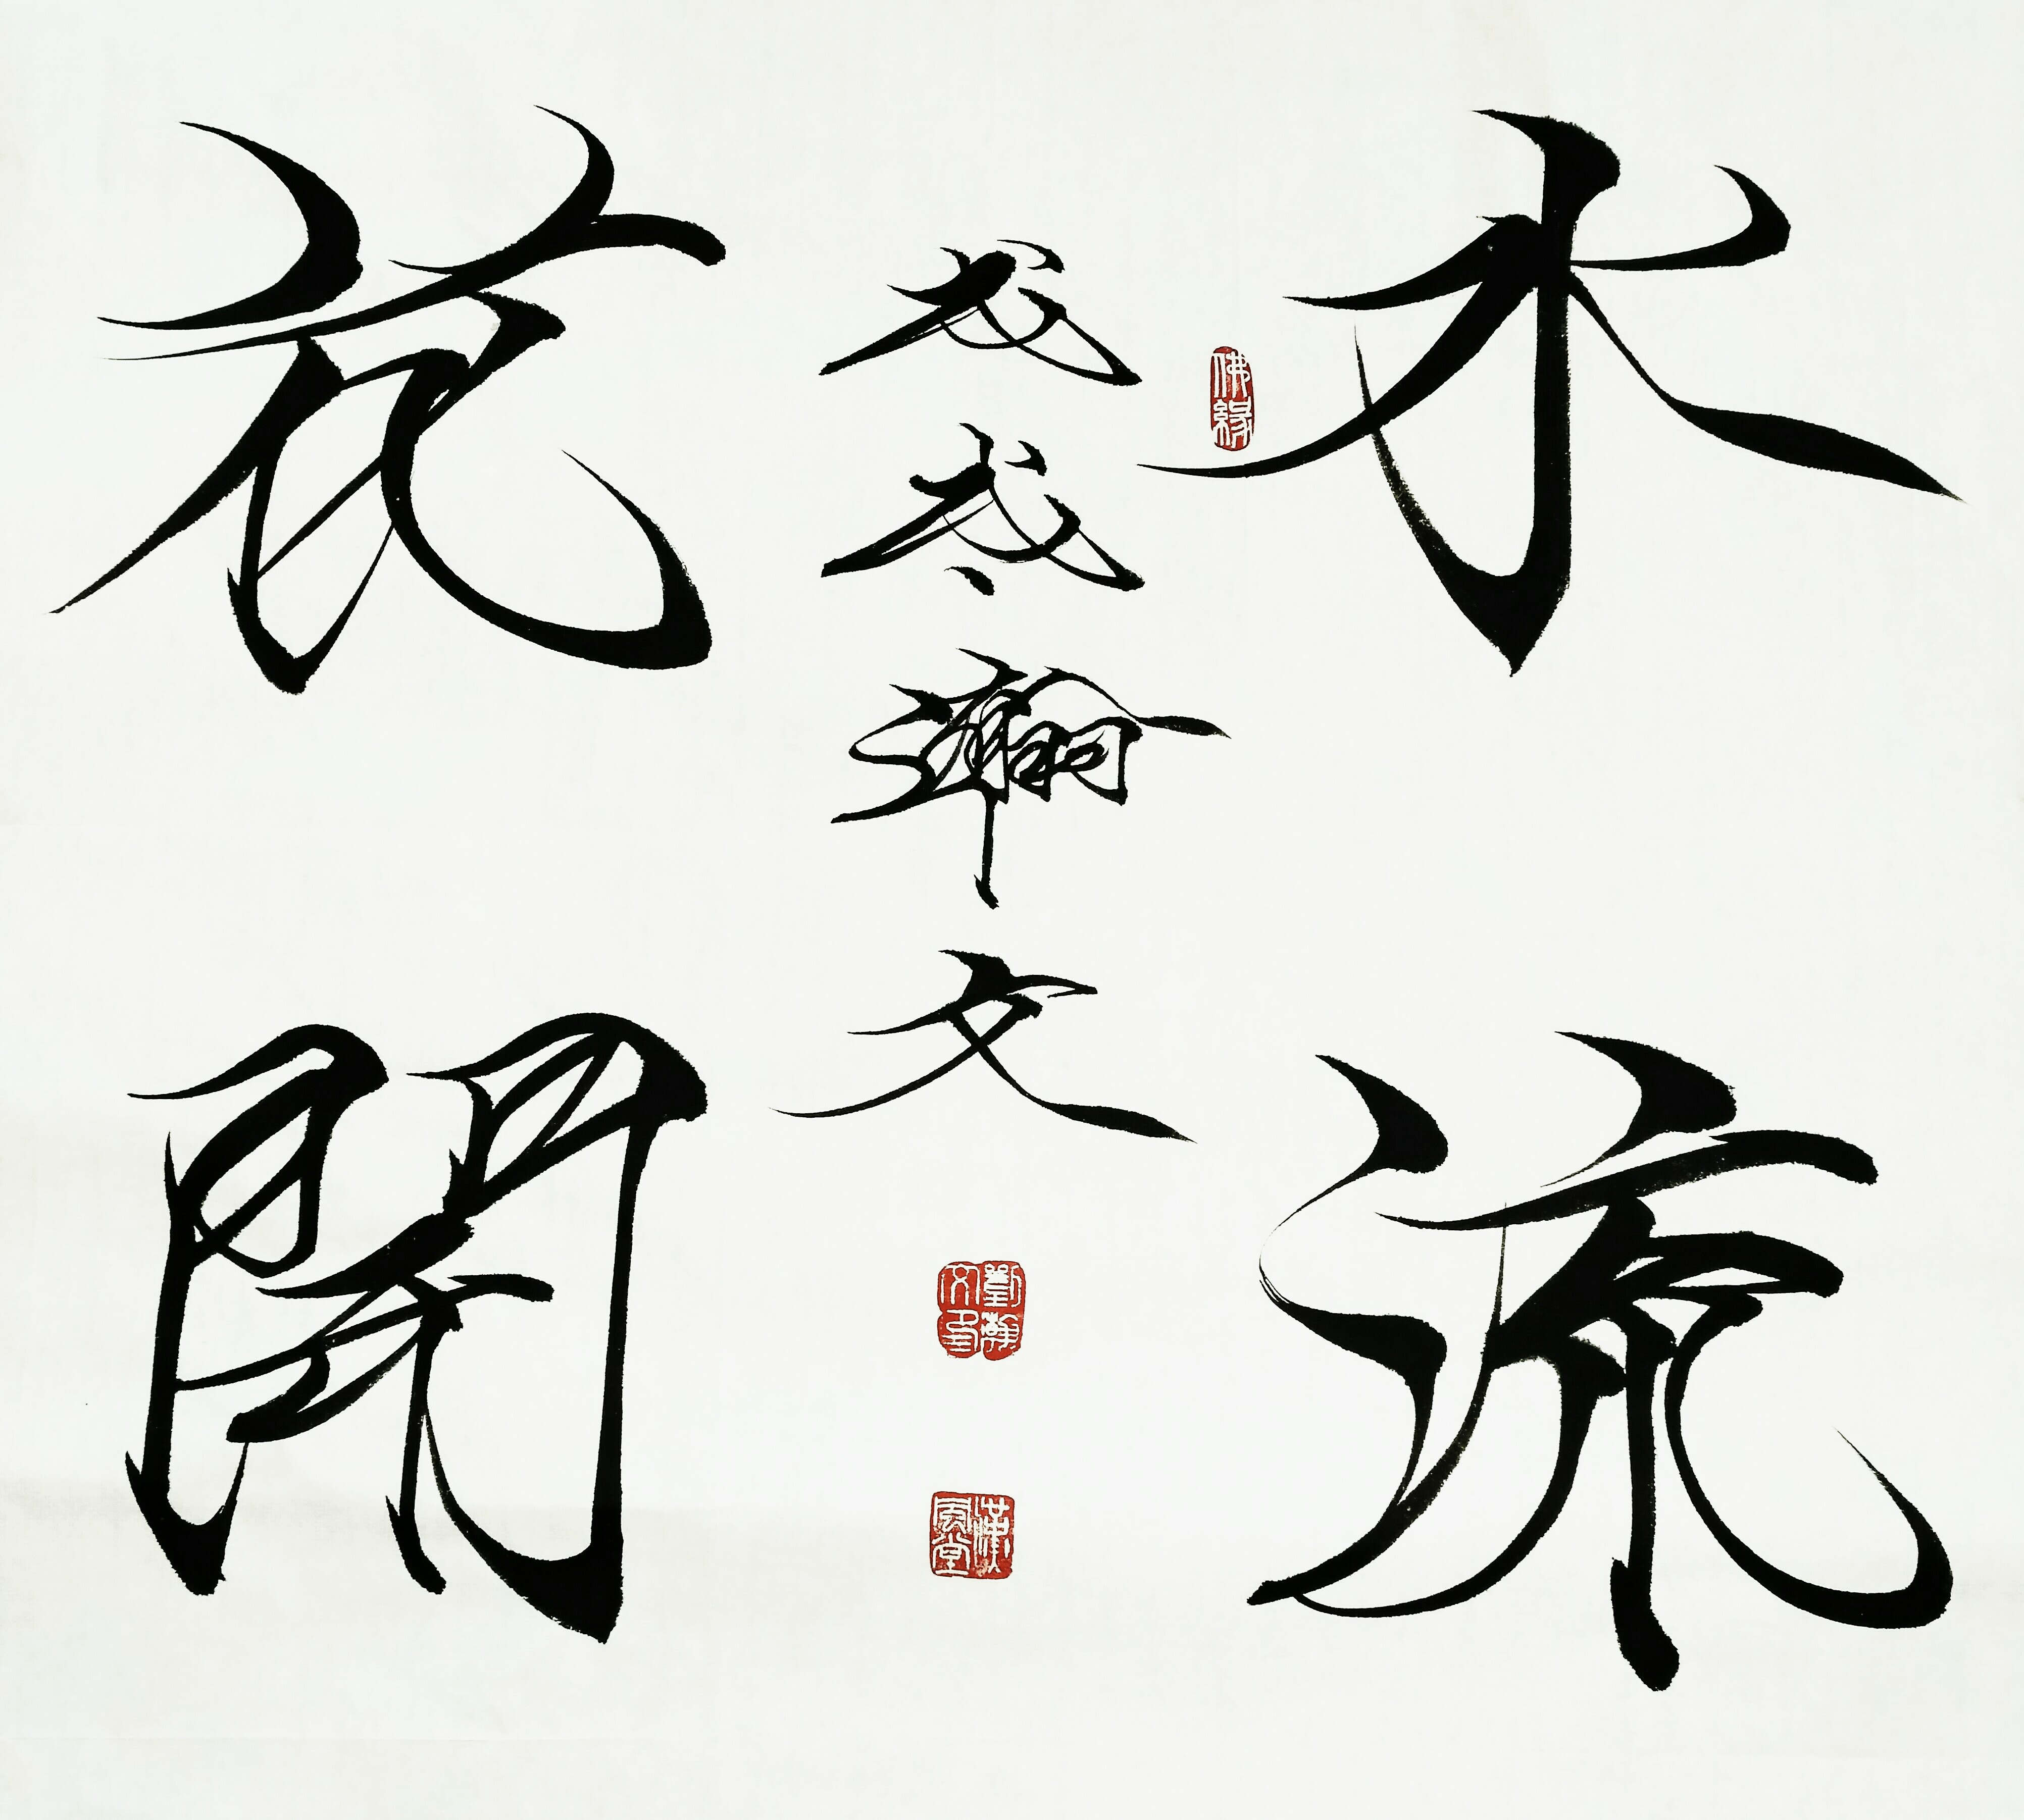 水流
花開
戊戌瀚文
佛緣
劉瀚文印
漢風堂